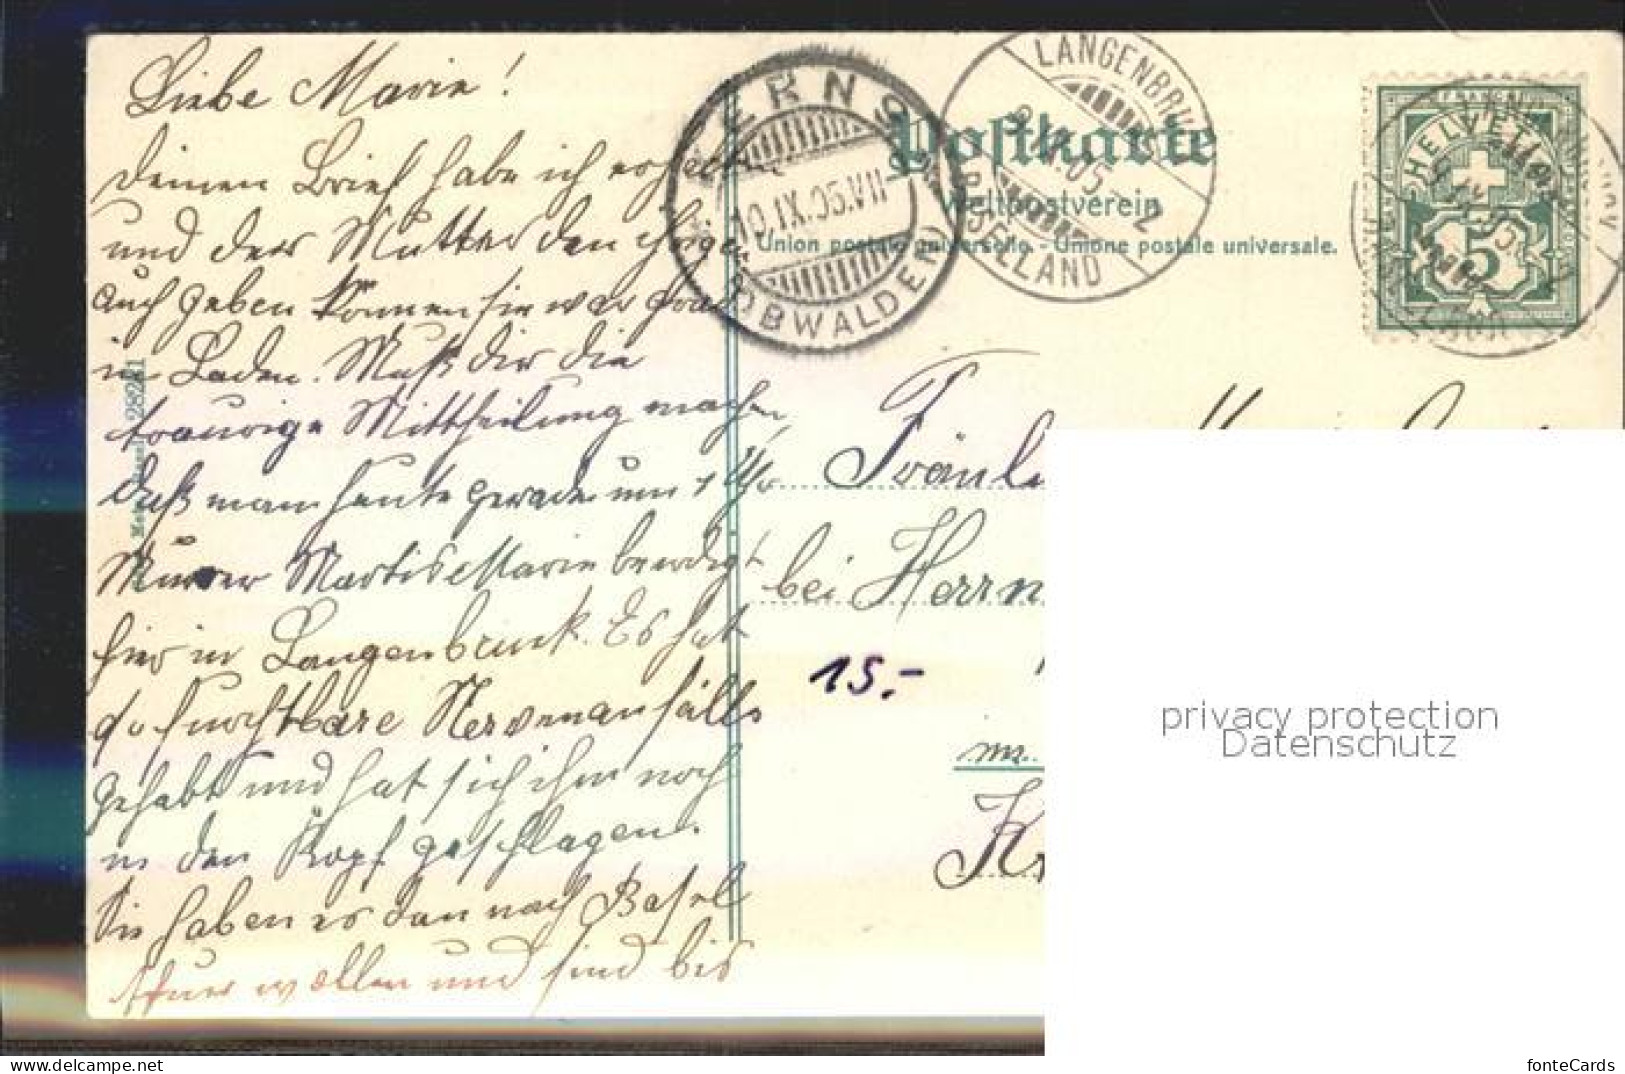 Liebe Marie!
deinen Brief habe ich erhalten
und der Mutter den
auch geben können sie war grad
im Laden. Muß dir die
traurige Mittheilung machen
daß man heute gerade um 1 Uhr
Murer Martis Marie beerdigt
hier in Langenbruck. Es hat
so furchtbare Nervenanfälle
gehabt und hat sich ihm noch
in den Kopf geschlagen.
Sie haben es dan nach Basel
thun wollen und sind bis
KERNS
10.IX.05.VII
(OBWALDEN)
LANGENBRUCK
BASELLAND
Postkarte
Weltpostverein
Union postale universelle. - Unione postale universale.
FRANCO
HELVETIA
5
Fräul
bei Herrn
15.-
in
Kr
28281
privacy protection
Datenschutz
oldthing.de/ansichtskarten-center
fonteCards